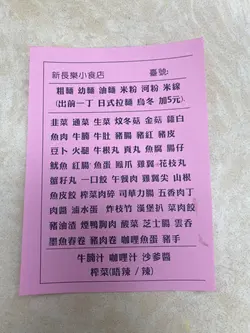 新長樂小食店 臺號:
粗麵 幼麵 油麵 米粉 河粉 米線
(出前一丁 日式拉麵 烏冬 加5元).
韭菜 通菜 生菜 炆冬菇 金菇 蘿白
魚肉 牛腩 牛肚 豬腸 豬紅 豬皮
豆卜 火腿 牛根丸 貢丸 魚腐 腸仔
魷魚 紅腸 魚蛋 鳳爪 雞翼 花枝丸
蟹籽丸 一口餃 午餐肉 雞翼尖 山根
魚皮餃 榨菜肉碎 司華力腸 五香肉丁
肉醬 滷水蛋 炸枝竹 漢堡扒 菜肉餃
豬油渣 煙鴨胸肉 酸菜 芝士腸 雲吞
墨魚春卷 豬肉卷 咖哩魚蛋 豬手
牛腩汁 咖哩汁 沙爹醬
榨菜(唔辣 / 辣)